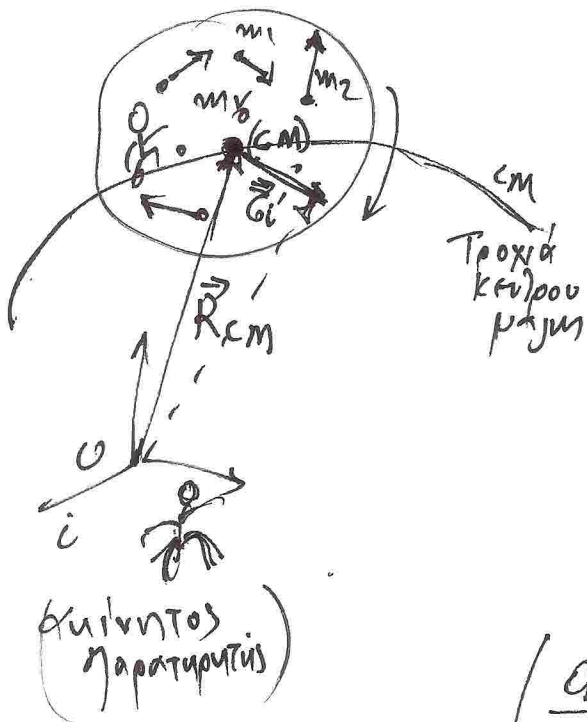 m₁
m₂
mν
(CM)
r⃗ᵢ'
CM
Τροχιά
κέντρου
μάζης
R⃗CM
O
i
(ακίνητος
παρατηρητής)